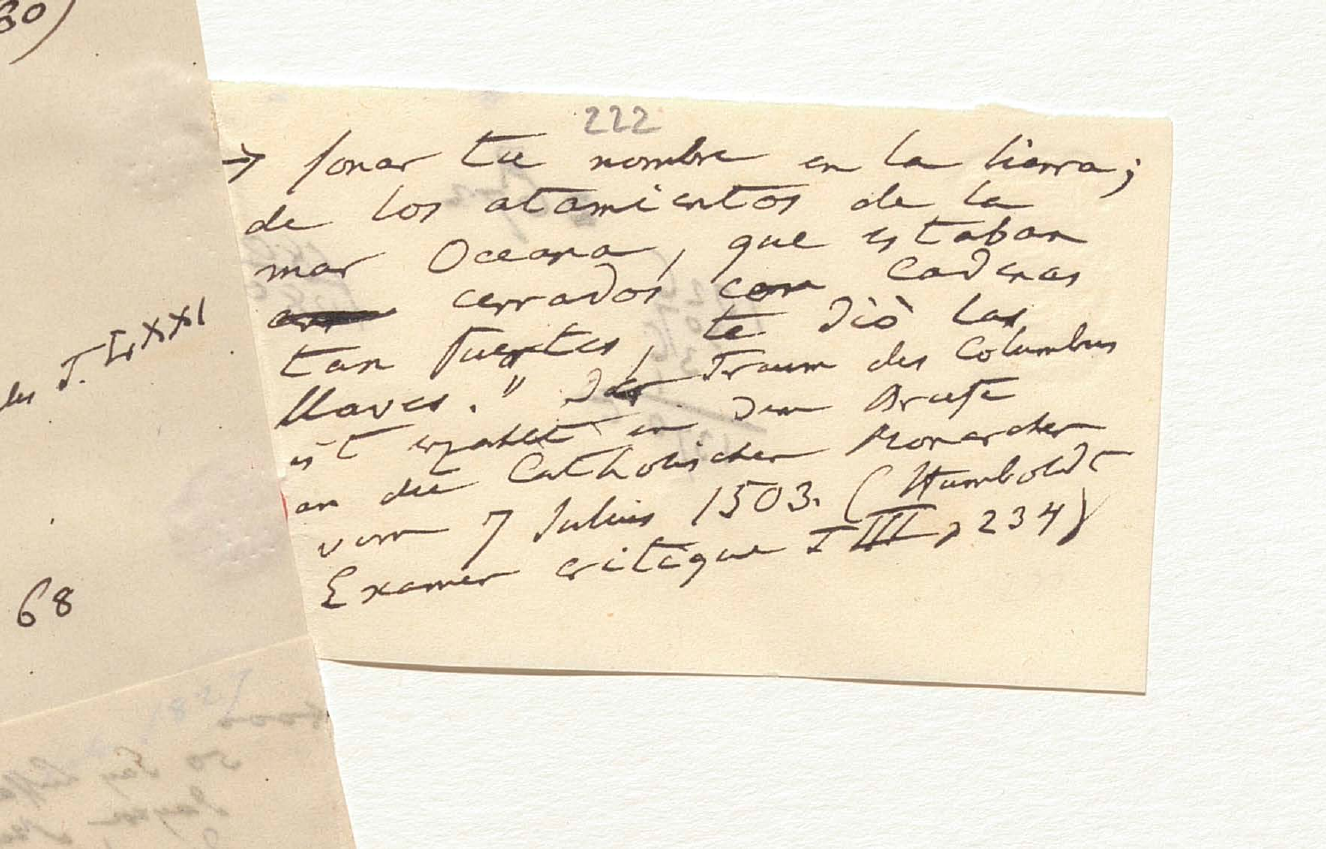 30)
T. LXXI
68
222
→ sonar tu nombre en la tierra;
de los atamientos de la
mar Oceana, que estaban
cerrados con cadenas
tan fuertes, te diò las
llaves." Der Traum des Columbus
ist erzahlt in dem Briefe
an die Catholischen Monarchen
vom 7 Julius 1503. (Humboldt
Examen critique T III, 234)